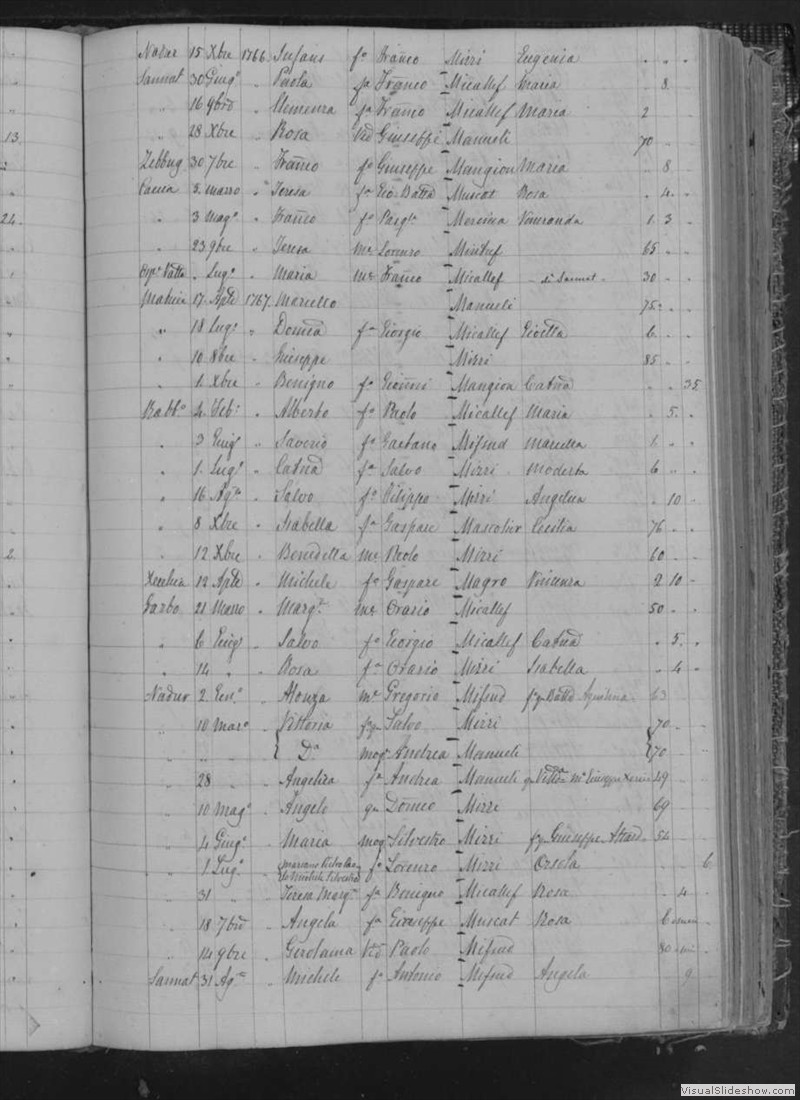 15 Xbre 1766 Infans fo Franco Mizzi Eugenia
Sannat 30 Giugo " Paola fa Franco Micallef Maria 8
" 16 9bre " Clemenza fa Franco Micallef Maria 2
13 " 28 Xbre " Rosa Giuseppe Manueli 70
Zebbug 30 7bre " Franco fo Giuseppe Mangion Maria 8
3 Marzo " Teresa fa Gio Batta Muscat Rosa 4
24 " 3 Mago " Franco fo Pasqle Veneranda 1 3
" 23 9bre " Teresa me Lorenzo 65
Lugo " Maria me Franco Micallef di Sannat 30
Matrice 17 Aple 1767 Marcello Manueli 75
" 18 Lugo " Domca fa Giorgio Micallef 6
" 10 8bre " Giuseppe Mizzi 85
" 1 Xbre " Benigno fo Mangion Catna 35
Rabbo 4 Feb " Alberto fo Paolo Micallef Maria 5
" 3 Giugo " Saverio fo Gaetano Mifsud Marcella 1
" 1 Lugo " Catna fa Salvo Mizzi Modesta 6
" 16 Agto " Salvo fo Filippo Mizzi Angelica 10
" 8 Xbre " Isabella fa Gaspare Cecilia 76
2 " 12 Xbre " Benedetta me Paolo Mizzi 60
12 Aple " Michele fo Gaspare Magro Vincenza 2 10
Garbo 21 Marzo " Margta me Orazio Micallef 50
" 6 Giugo " Salvo fo Giorgio Micallef Catna 5
" 14 " " Rosa fa Orazio Mizzi Isabella 4
Nadur 2 Geno " Alonza me Gregorio Mifsud fqm Batta Aquilina 63
" 10 Marzo " Vittoria fqm Salvo Mizzi 70
" " " Da mog Andrea Manueli 70
" 28 " Angelica fa Andrea Manueli 49
" 10 Mago " Angelo qm Domco Mizzi 69
" 4 Giugo " Maria mog Silvestro Mizzi fqm Giuseppe Attard 54
" 1 Lugo " Mariano Nicolao
Michele Silvestro fo Lorenzo Mizzi Orsola 6
" 31 " " Teresa Margta fa Benigno Micallef Rosa 4
" 18 7bre " Angela fa Giuseppe Muscat Rosa 6
" 14 9bre " Gerolama Paolo Mifsud 80
Sannat 31 Agto " Michele fo Antonio Mifsud Angela 9
VisualSlideshow.com